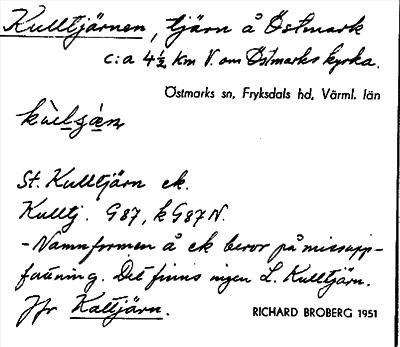 Kulltjärnen, tjärn å Östmark
c:a 4½ km V. om Östmarks kyrka.
Östmarks sn, Fryksdals hd, Värml. län
St. Kulltjärn ek.
Kulltj. G87, k G87N.
- Namnformen å ek beror på missupp-
fattning. Det finns ingen L. Kulltjärn.
Jfr Kaltjärn.
RICHARD BROBERG 1951